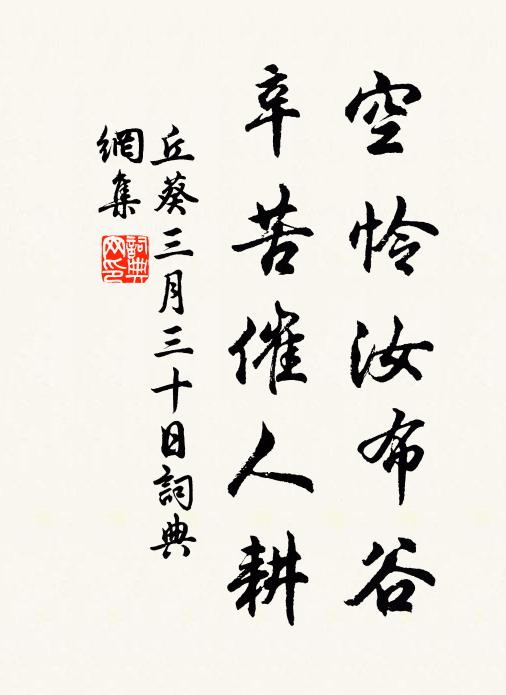 空怜汝布谷
辛苦催人耕
丘葵三月三十日詞典
網集
詞典网印